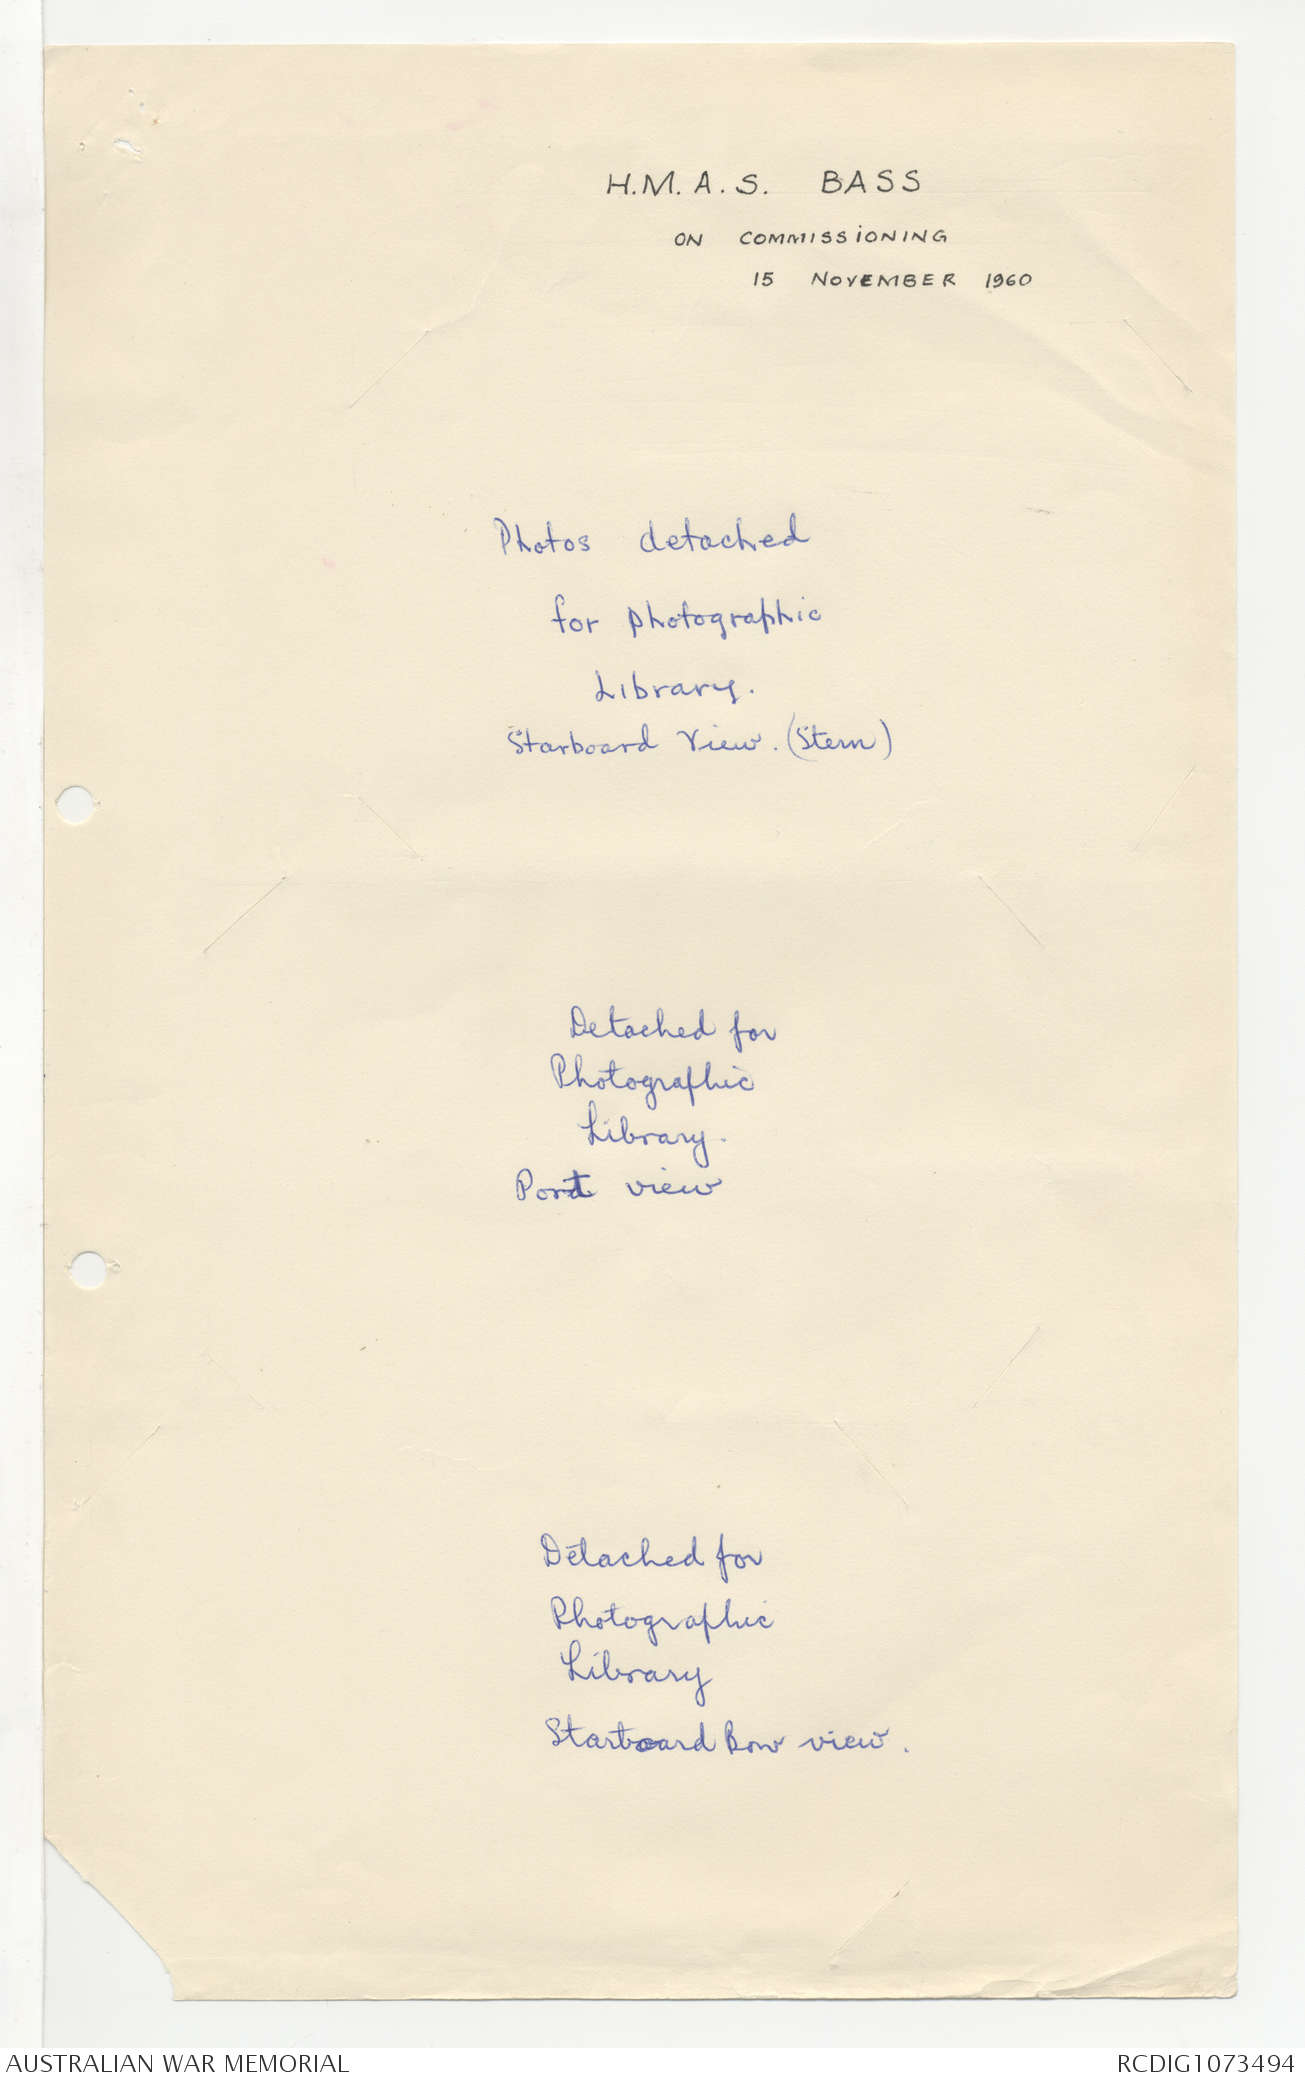 H.M.A.S. BASS
ON COMMISSIONING
15 NOVEMBER 1960
Photos detached
for photographic
Library.
Starboard View. (Stern)
Detached for
Photographic
Library.
Port view
Detached for
Photographic
Library
Starboard Bow view.
AUSTRALIAN WAR MEMORIAL
RCDIG1073494